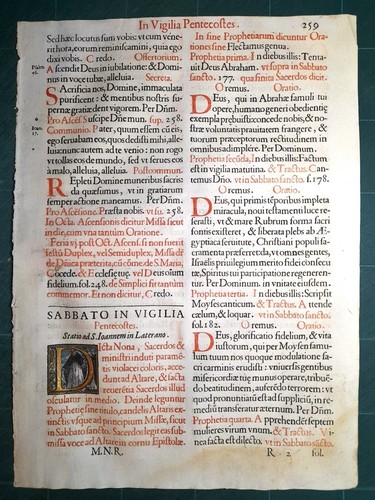 In Vigilia Pentecostes. 259
Sed hæc locutus sum vobis: vt cum vene-
rit hora, eorum reminiscamini, quia ego
dixi vobis. Credo. Offertorium.
Ascendit Deus in iubilatione: & Domi-
nus in voce tubæ, alleluia. Secreta.
SAcrificia nos, Domine, immaculata
purificent: & mentibus nostris su-
pernæ gratiæ dent vigorem. Per Dñm.
Pro Ascēs. Suscipe Dñe mun. sup. 258.
Communio. Pater, quum essem cū eis,
ego seruabam eos, quos dedisti mihi, alle-
luia: nunc autem ad te venio: non rogo
vt tollas eos de mundo, sed vt serues eos
à malo, alleluia, alleluia. Postcommun.
REpleti Domine muneribus sacris:
da quæsumus, vt in gratiarum
semper actione maneamus. Per Dñm.
Pro Ascensione. Præsta nobis. vt su. 258.
In Octa. Ascensionis dicitur Missa sicut
in die, cum vna tantùm Oratione.
Feria vj. post Oct. Ascens. si non fuerit
festū Duplex, vel Semiduplex, Missa dr̄
de Dñica præterita, cū cōme. de S. Maria,
Cōcede. & Ecclesię tuę. vel Deus oīum
fidelium. fol. 248. de Simplici fit tantùm
commemor. Et non dicitur, Credo.
SABBATO IN VIGILIA
Pentecostes.
Statio ad S. Ioannem in Laterano.
DIcta Nona, Sacerdos &
ministri induti paramē-
tis violacei coloris, acce-
dunt ad Altare, & facta
reuerētia Sacerdos illud
osculatur in medio. Deinde leguntur
Prophetię sine titulo, candelis Altaris ex-
tinctis vsque ad principium Missæ, sicut
in Sabbato sancto. Sacerdos legit eas sub-
missa voce ad Altare in cornu Epistolæ.
M.N.R.
In fine Prophetiarum dicuntur Ora-
tiones sine Flectamus genua.
Prophetia prima. In diebus illis: Tenta-
uit Deus Abraham. vt supra in Sabbato
sancto. 177. qua finita Sacerdos dicit.
Oremus. Oratio.
DEus, qui in Abrahæ famuli tui
opere, humano generi obedientię
exempla prębuisti: concede nobis, & no-
stræ voluntatis prauitatem frangere, &
tuorum præceptorum rectitudinem in
omnibus adimplêre. Per Dominum.
Prophetia secūda. In diebus illis: Factum
est in vigilia matutina. & Tractus. Can-
temus Dño. vt in Sabbato sancto. f. 178.
Oremus. Oratio.
DEus, qui primis tēporibus impleta
miracula, noui testamenti luce re-
serasti, vt & mare Rubrum forma sacri
fontis existeret, & liberata plebs ab Æ-
gyptiaca seruitute, Christiani populi sa-
cramenta præferret: da, vt omnes gentes,
Israëlis priuilegium merito fidei consecu-
tæ, Spiritus tui participatione regeneren-
tur. Per Dominum. in vnitate eiusdem.
Prophetia tertia. In diebus illis: Scripsit
Moyses canticum. & Tractus. Attende
cælum, & loquar. vt in Sabbato sancto.
fol. 182. Oremus. Oratio.
DEus, glorificatio fidelium, & vita
iustorum, qui per Moysen famu-
lum tuum nos quoque modulatione sa-
cri carminis erudisti: vniuersis gentibus
misericordiæ tuæ munus operare, tribuē-
do beatitudinem, auferēdo terrorem: vt
quod pronuntiatū est ad suppliciū, in re-
mediū transferatur æternum. Per Dñm.
Prophetia quarta. Apprehendēt septem
mulieres virum vnum. & Tractus. Vi-
nea facta est dilecto. vt in Sabbato sācto.
R 2 fol.